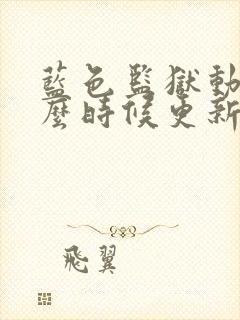 藍色監獄動
麼時候更新
飛翼